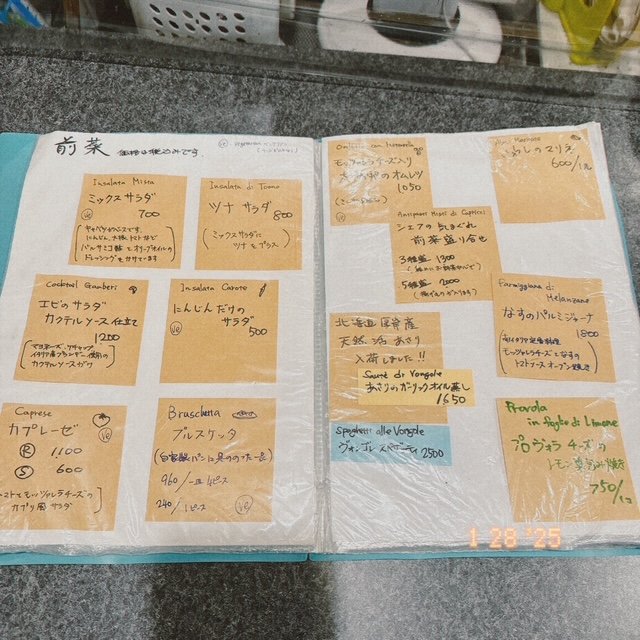 前菜 価格は税込みです。
Ve vegetarian
Insalata Mista
ミックスサラダ
Ve 700
キャベツがベースです。
にんじん、大根、トマトなど
バルサミコ酢とオリーブオイルの
ドレッシングをかけています
Insalata di Tonno
ツナ サラダ
800
ミックスサラダに
ツナをプラス
Cocktail Gamberi
エビのサラダ
カクテルソース仕立て
1200
マヨネーズ、ケチャップ
カクテルソースがけ
Insalata Carote
にんじんだけの
サラダ
Ve 500
Caprese
カプレーゼ
Ve
R 1,100
S 600
トマトとモッツァレラチーズの
カプリ風サラダ
Bruschetta
ブルスケッタ
960/一皿4ピース
240/1ピース
Ve
モッツァレラチーズ入り
オムレツ
1050
Ve
Antipasti Misti di Capricci
シェフの気まぐれ
前菜盛り合せ
3種盛 1300
5種盛 2000
いわしのマリネ
600
Parmiggiana di
Melanzane
なすのパルミジャーナ
1800
南イタリア定番料理
モッツァレラチーズとなすの
トマトソースオーブン焼き
北海道厚岸産
天然活あさり
入荷しました!!
Sauté di Vongole
あさりのガーリックオイル蒸し
1650
Spaghetti alle Vongole
ヴォンゴレスパゲティ 2500
Provola
in foglie di Limone
プロヴォラチーズの
レモン葉包み焼き
750/1コ
1 28 '25